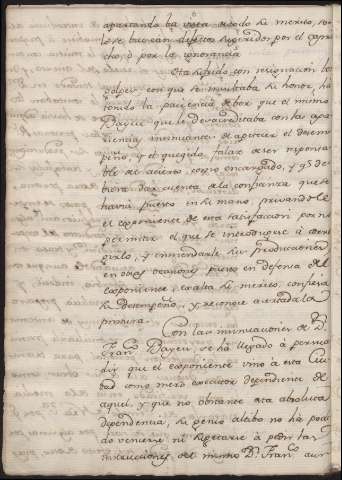 apartando la vista de todo su merito, solo
le se buscan defectos sugeridos por el capri
cho, ó por la ignorancia.
Ha sufrido con resignacion los
golpes con que se insultaba su honor, ha
tenido la paciencia de oir que el mismo
Bayeu que lo desacreditaba con las apa
riencias, insinuantes de apetecer el desem
peño, y el que pida tratar de ser responsa
ble al acierto, como encargado, y q.e de
biera dar cuenta a la confianza que se
havia puesto en su mano, privandole
el exponente de esta satisfacion por no
permitir el que se introduzca á corre
girlo, y enmendarle sus producciones
en otras ocasiones puesto en defensa del
exponente, exalta su merito, confiesa
su desempeño, y reconoce acertada la
pintura.
Con las insinuaciones de D.n
Fran.co Bayeu, se há llegado á persua
dir que el exponente vino á esta Ciu
dad como mero executor dependiente de
aquel, y que no obstante esta absoluta
dependencia, su genio altibo no ha podi
do venirse ni sugetarse á pedir las
instrucciones del mismo D.n Fran.co aun